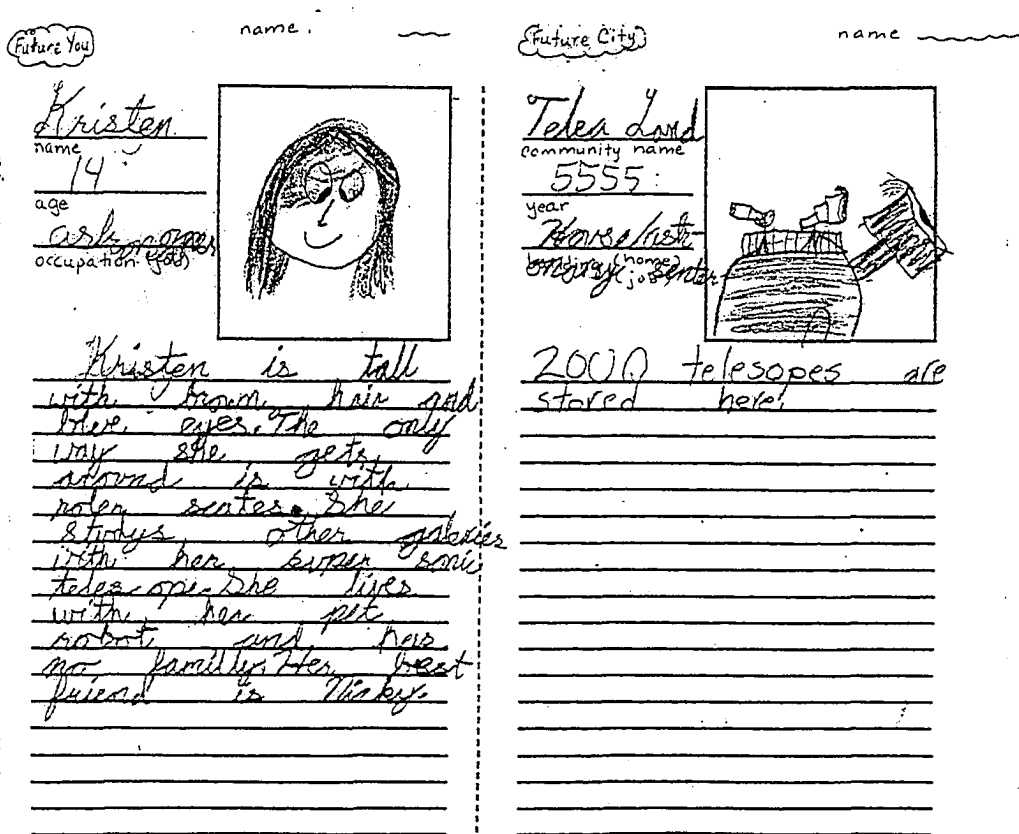 Future You
name.
Kristen
name
14
age
occupation (job)
Kristen is tall
with brown hair and
blue eyes. The only
way she gets
around is with
roler scates. She
studys other galexies
with her super sonic
telescope. She lives
with her pet
robot and has
no familly. Her best
friend is Nicky.
Future City
name
Telea Land
community name
5555
year
House/astr
(home)
(job) senter
2000 telesopes are
stored here.